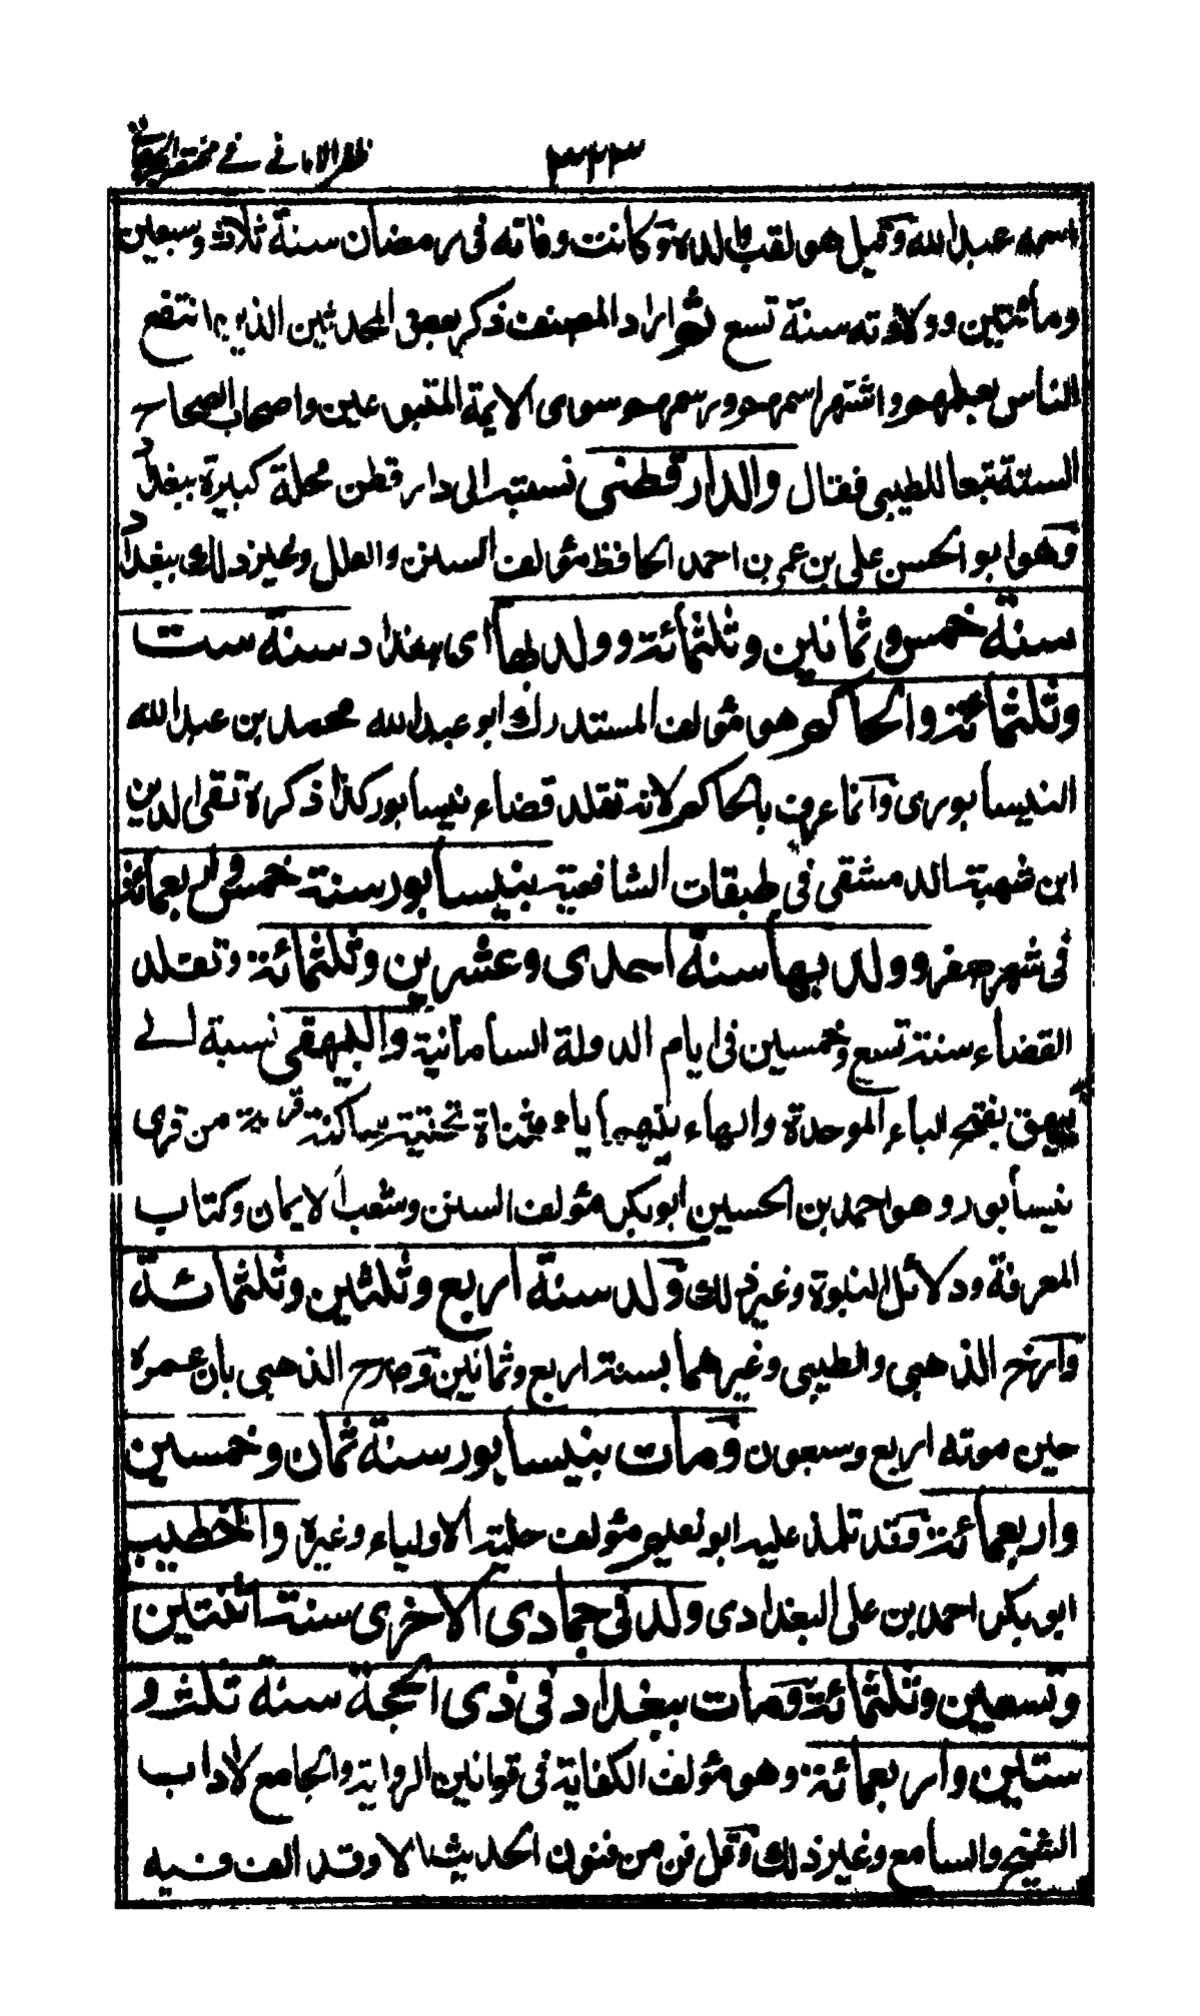 ظفر الامانے فے مختصر الجرجانے
٣٤٣
اسمه عبدالله وقيل هو لقب لوالده وكانت وفاته فى رمضان سنة ثلاث وسبعين
ومائتين وولادته سنة تسع ثم اراد المصنف ذكر بعض المحدثين الذين انتفع
الناس بعلمهم واشتهر اسمهم ورسمهم سوى الايمة المتبوعين واصحاب الصحاح
الستة تبعا للطيبى فقال والدار قطنى نسبته الى دار قطن محلة كبيرة ببغداد
وهو ابو الحسن على بن عمر بن احمد الحافظ مؤلف السنن والعلل وغير ذلك ببغداد
سنة خمس وثمانين وثلثمائة وولد بها اى ببغداد سنة ست
وثلثمائة والحاكم هو مؤلف المستدرك ابو عبدالله محمد بن عبدالله
النيسابورى وانما عرف بالحاكم لانه تقلد قضاء نيسابور كذا ذكره تقى الدين
ابن شهبة الدمشقى فى طبقات الشافعية بنيسابور سنة خمس واربعمائة
فى شهر صفر وولد بها سنة احدى وعشرين وثلثمائة وتقلد
القضاء سنة تسع وخمسين فى ايام الدولة السامانية والبيهقى نسبة الے
بيهق بفتح الباء الموحدة والهاء بينهما ياء مثناة تحتية ساكنة قرية من قرى
نيسابور وهو احمد بن الحسين ابوبكر مؤلف السنن وشعب الايمان وكتاب
المعرفة ودلائل النبوة وغير ذلك ولد سنة اربع وثلثين وثلثمائة
وارخ الذهبى والطيبى وغيرهما بسنة اربع وثمانين وصرح الذهبى بان عمره
حين موته اربع وسبعون ومات بنيسابور سنة ثمان وخمسين
واربعمائة وقد تلمذ عليه ابو نعيم مؤلف حلية الاولياء وغيره والخطيب
ابو بكر احمد بن على البغدادى ولد فى جمادى الاخرى سنة اثنتين
وتسعين وثلثمائة ومات ببغداد فى ذى الحجة سنة ثلث و
ستين واربعمائة وهو مؤلف الكفاية فى قوانين الرواية والجامع لاداب
الشيخ والسامع وغير ذلك وقل فن من فنون الحديث الا وقد الف فيه